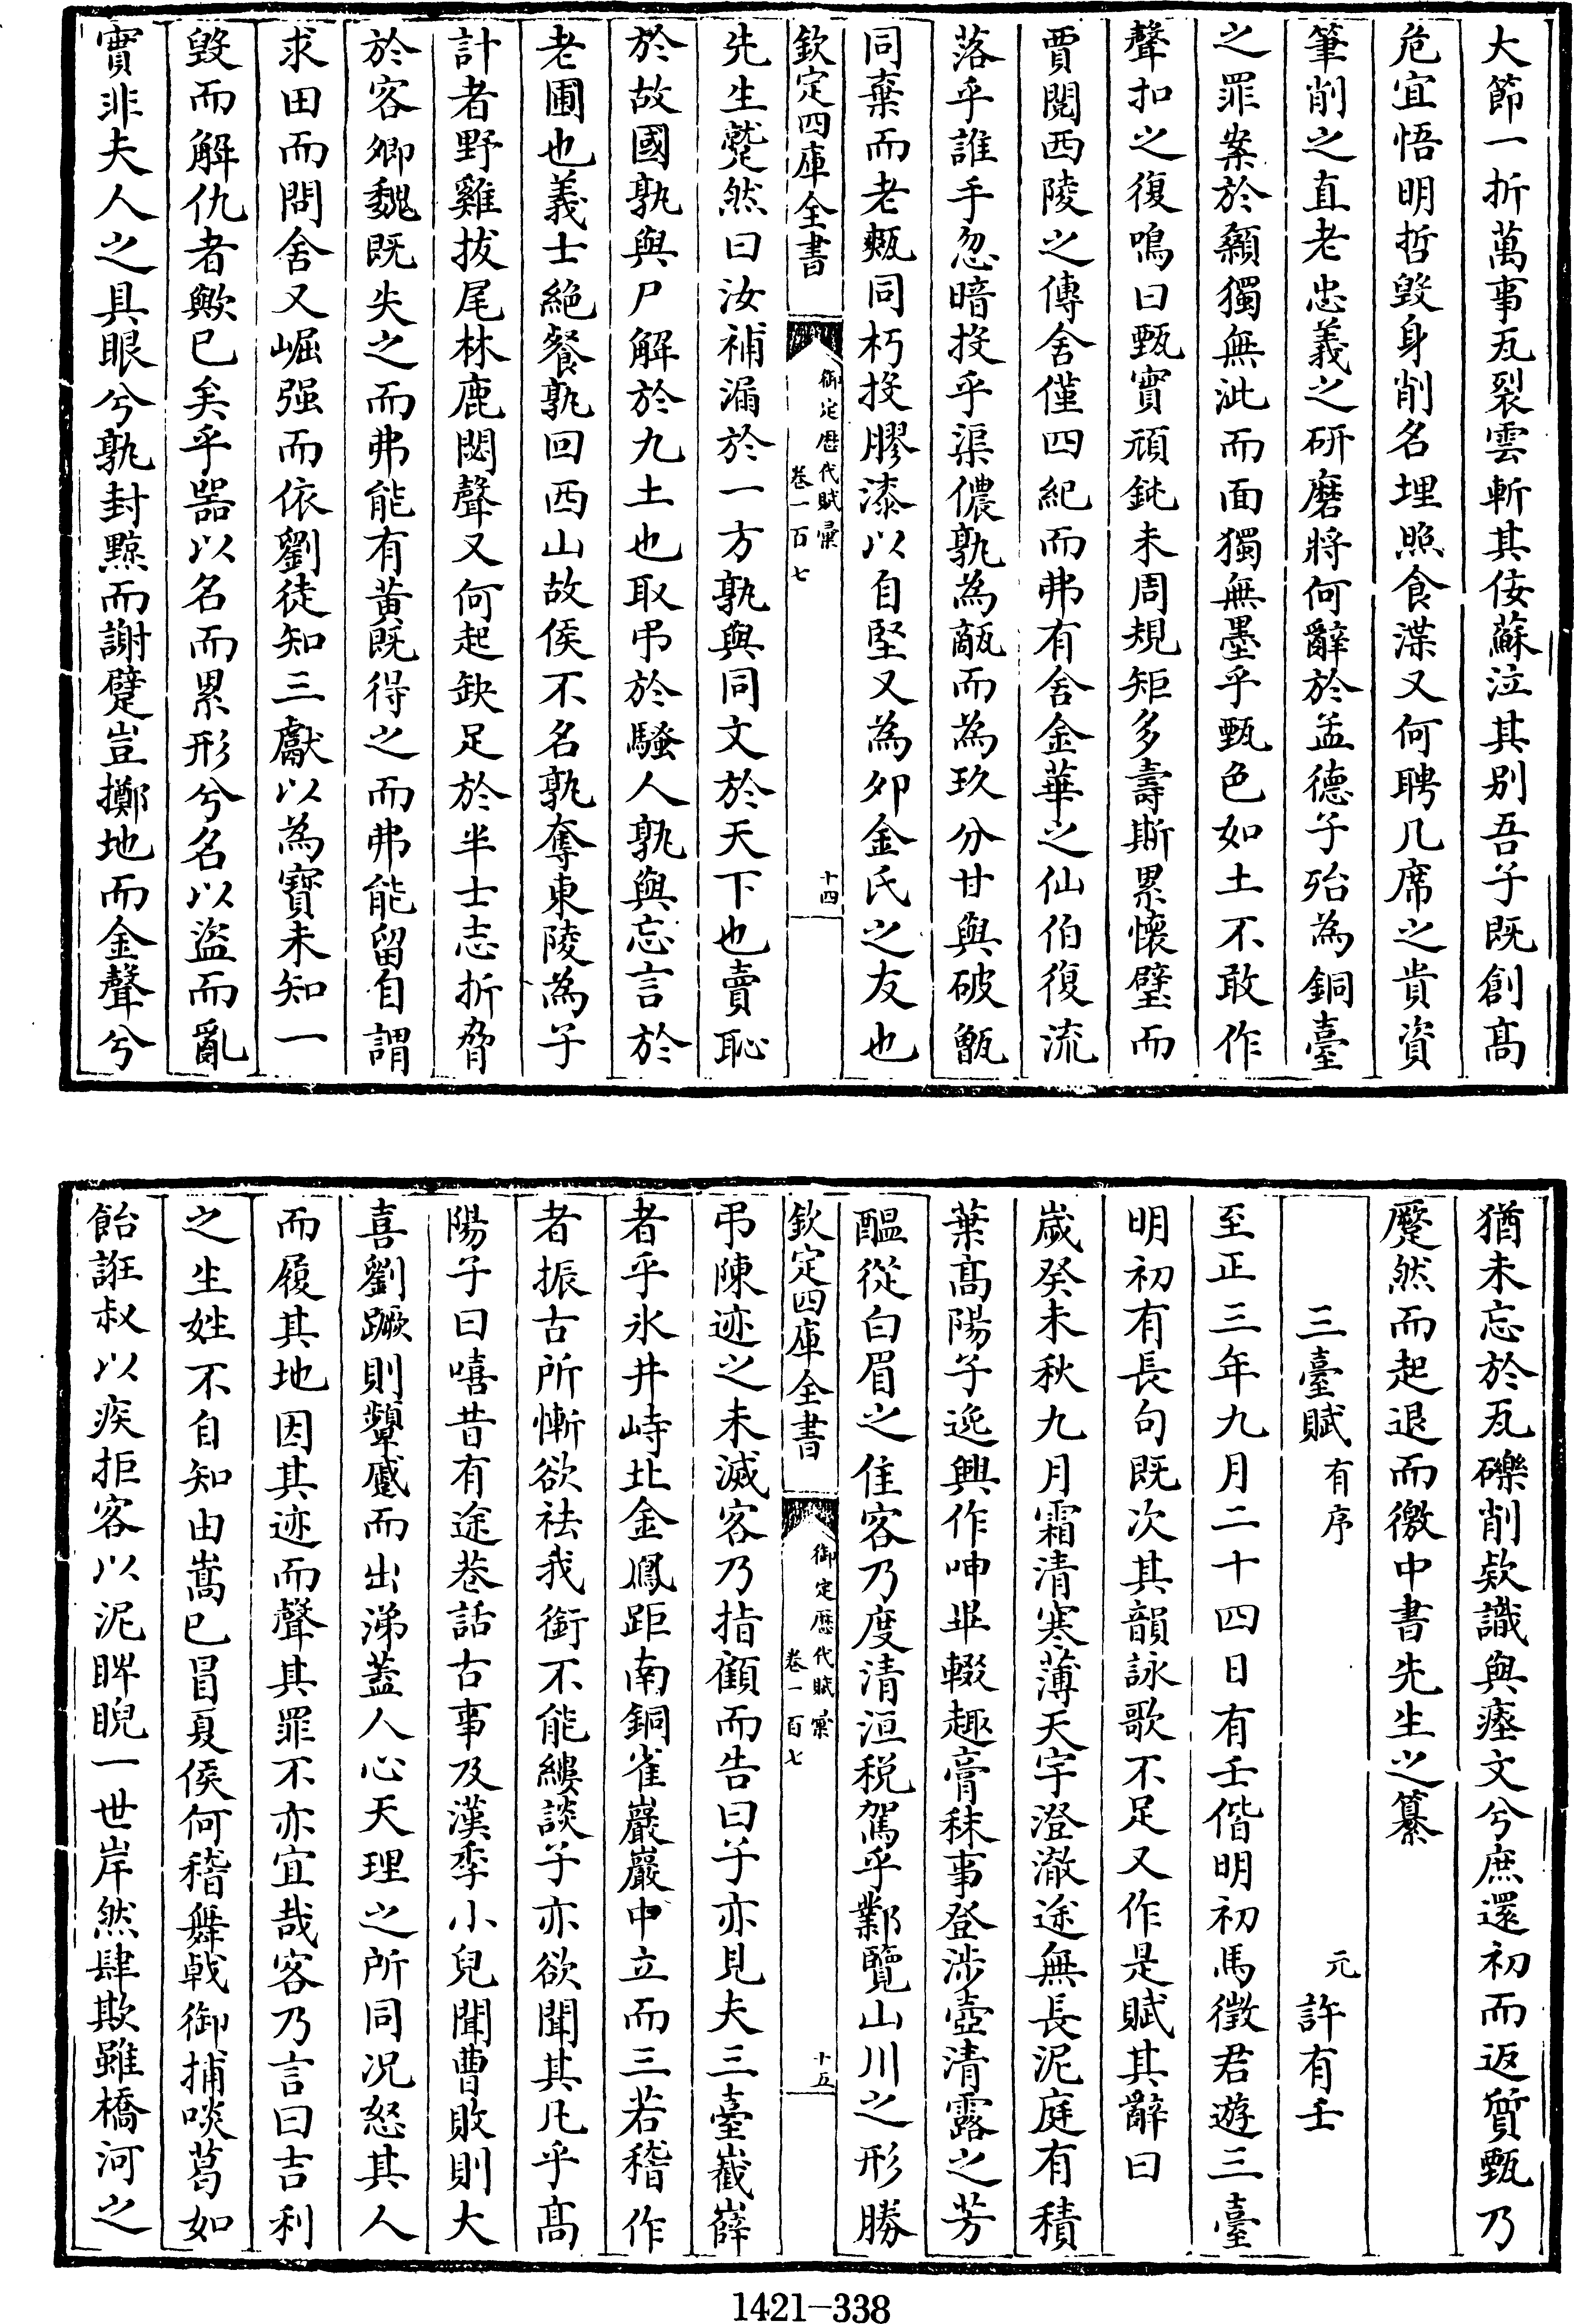 大節一折萬事瓦裂雲斬其佞蘇泣其别吾子既創髙
危宜悟明哲毁身削名埋照食渫又何聘几席之貴資
筆削之直老忠義之研磨將何辭於孟德子殆為銅臺
之罪案於顙獨無泚而面獨無墨乎甄色如土不敢作
聲扣之復鳴曰甄實頑鈍未周規矩多壽斯累懷璧而
賈閱西陵之傳舍僅四紀而弗有舍金華之仙伯復流
落乎誰手忽暗投乎渠儂孰為瓻而為玖分甘與破甑
同棄而老瓶同朽投膠漆以自堅又為夘金氏之友也
欽定四庫全書
御定歴代賦彙
卷一百七
十四
先生蹵然曰汝補漏於一方孰與同文於天下也賣恥
於故國孰與尸解於九土也取弔於騷人孰與忘言於
老圃也義士絶餐孰回西山故侯不名孰奪東陵為子
計者野雞拔尾林鹿閟聲又何起缺足於半士志折脅
於客卿魏既失之而弗能有黄既得之而弗能留自謂
求田而問舍又崛强而依劉徒知三獻以為寳未知一
毁而解仇者歟已矣乎噐以名而累形兮名以盜而亂
實非夫人之具眼兮孰封黥而謝躄豈擲地而金聲兮
猶未忘於瓦礫削欵識與瘞文兮庶還初而返質甄乃
蹷然而起退而徼中書先生之纂
三臺賦有序
元許有壬
至正三年九月二十四日有壬偕明初馬徵君遊三臺
明初有長句既次其韻詠歌不足又作是賦其辭曰
嵗癸未秋九月霜清寒薄天宇澄澈途無長泥庭有積
葉髙陽子逸興作呻畢輟趣膏秣事登涉壺清露之芳
醖從白眉之佳客乃度清洹税駕乎鄴覽山川之形勝
欽定四庫全書
御定歴代賦彙
卷一百七
十五
弔陳迹之未滅客乃指顧而告曰子亦見夫三臺嶻嶭
者乎氷井峙北金鳳距南銅雀巖巖中立而三若稽作
者振古所慚欲祛我銜不能縷談子亦欲聞其凡乎髙
陽子曰嘻昔有途巷話古事及漢季小兒聞曹敗則大
喜劉蹶則顰蹙而出涕蓋人心天理之所同况怒其人
而履其地因其迹而聲其罪不亦宜哉客乃言曰吉利
之生姓不自知由嵩巳冒夏侯何稽舞戟御捕啖葛如
飴誑叔以疾拒客以泥睥睨一世岸然肆欺雖橋河之
1421-338